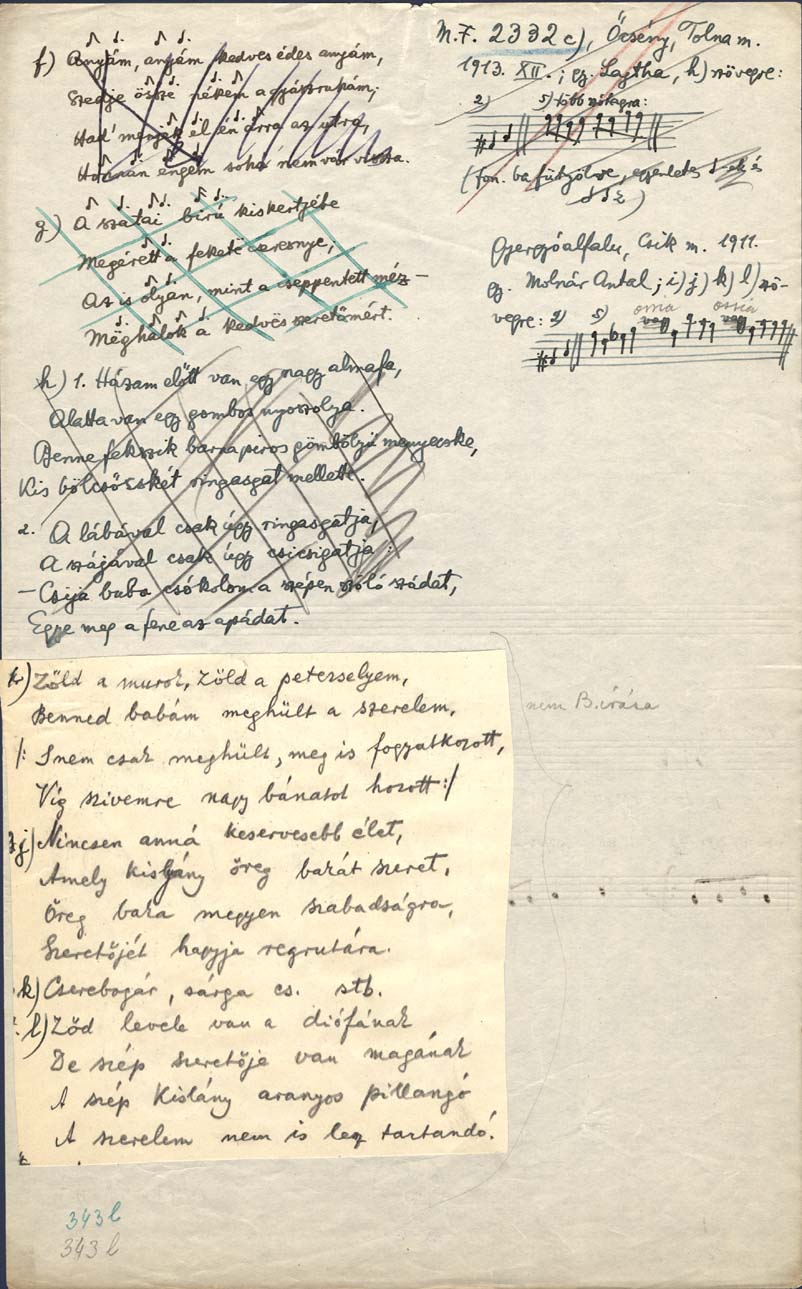 f) Anyám, anyám kedves édes anyám,
Szedje össze nékem a gyászruhám;
Had' menjek el én arra az utra,
Honnan engem soha nem vár vissza.
g) A szatai biró kiskertjébe
Megérett a fekete cseresnye;
Az is olyan, mint a cseppentett méz –
Meghalok a kedves szeretőmért.
h) 1. Házam előtt van egy nagy almafa,
Alatta van egy gombos nyoszolya.
Benne fekszik barnapiros gömbölyü menyecske,
Kis bölcsőcskét ringasgat mellette.
2. A lábával csak úgy ringasgatja,
A szájával csak úgy csicsigatja:
– Csija baba csókolom a szépen szóló szádat,
Egye meg a fene az apádat.
M.F. 2332 c), Őcsény, Tolna m.
1913. XII.; gy. Lajtha, h) szövegre:
2) 5) több nótagra:
(fon. ba fütyölve, egyenletes
Gyergyóalfalu, Csik m. 1911.
gy. Molnár Antal; i) j) k) l) szö-
vegre: 2) 5) ossia ossia
Zöld a murok, zöld a peterselyem,
Benned babám meghült a szerelem,
/: S nem csak meghült, meg is fogyatkozott,
Víg szivemre nagy bánatot hozott :/
j) Nincsen anná keservesebb élet,
Amely kislyány öreg bakát szeret,
Öreg baka megyen szabadságra,
Szeretőjét hagyja regrutára.
k) Cserebogár, sárga cs. stb.
l) Ződ levele van a diófának
De szép szeretője van magának
A szép kislány aranyos pillangó
A szerelem nem is leq tartandó.
nem B. írása
343 l
343 l